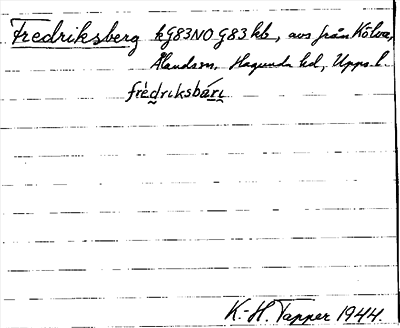 Fredriksberg kG83NO G83 kb, avs från Kölva,
Ålandssn, Hagunda hd, Upps. l.
frèdriksbárı
K.-H. Tapper 1944.